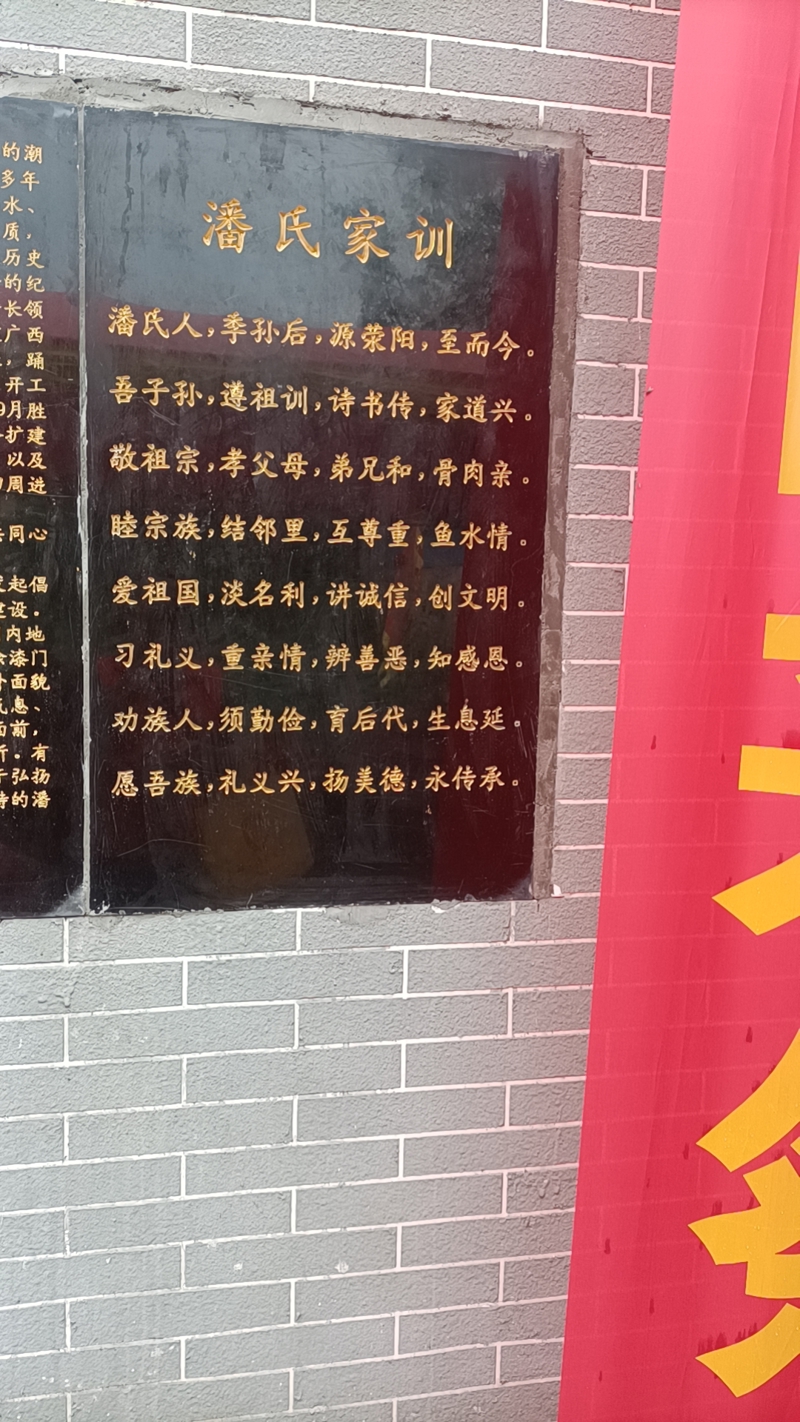 的潮
多年
水、
质，
历史
的纪
长领
广西
，踊
开工
9月胜
扩建
以及
周进
同心
起倡
设。
内地
漆门
面貌
息、
面前，
。有
弘扬
的潘
潘氏家训
潘氏人，季孙后，源荥阳，至而今。
吾子孙，遵祖训，诗书传，家道兴。
敬祖宗，孝父母，弟兄和，骨肉亲。
睦宗族，结邻里，互尊重，鱼水情。
爱祖国，淡名利，讲诚信，创文明。
习礼义，重亲情，辨善恶，知感恩。
劝族人，须勤俭，育后代，生息延。
愿吾族，礼义兴，扬美德，永传承。